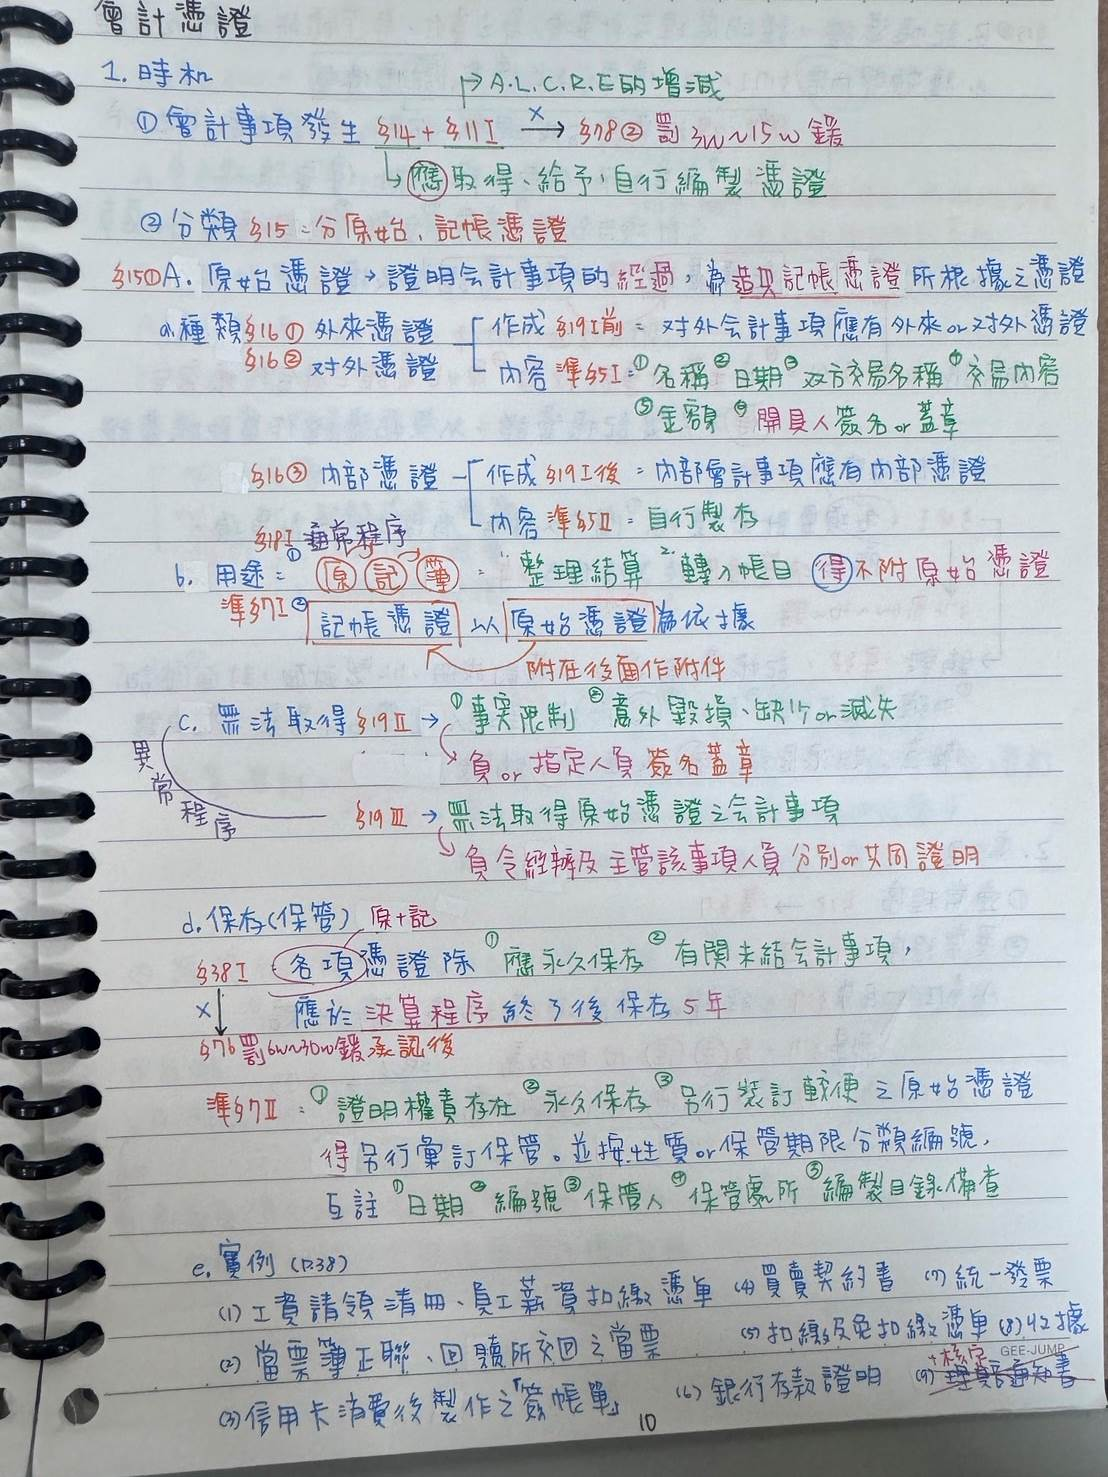 會計憑證
1. 時机
↱A.L.C.R.E的增減
① 會計事項發生 §14 + §11I X→ §78② 罰 3w~15w 鍰
↳應取得、給予、自行編製憑證
② 分類 §15 = 分原始、記帳憑證
§15① A. 原始憑證→證明会計事項的經過，為造具記帳憑證所根據之憑證
a.種類 §16① 外來憑證 作成 §19I前 = 对外会計事項應有外來or对外憑證
§16② 对外憑證 內容 準§5I = ①名稱②日期③双方交易名稱④交易內容
⑤金額⑥開具人簽名or蓋章
§16③ 內部憑證 作成 §19I後 = 內部會計事項應有內部憑證
內容 準§5II = 自行製存
§18I 通常程序
b. 用途 = ① 原 記 簿 = 1.整理結算 2.轉入帳目 得不附原始憑證
準§7I ② 記帳憑證 以 原始憑證 為依據
附在後面作附件
c. 無法取得 §19II → ①事實限制 ②意外毀損、缺少or滅失
↳負or指定人員簽名蓋章
異常程序 §19III → 無法取得原始憑證之会計事項
↳負令經辦及主管該事項人員分別or共同證明
d.保存(保管) 原+記
§38I 各項憑證除①應永久保存②有關未結会計事項，
X↓ 應於決算程序終了後保存5年
§76罰6w~30w鍰 承認後
準§7II = ①證明權責存在②永久保存③另行裝訂較便之原始憑證
得另行彙訂保管。並按性質or保管期限分類編號，
互註①日期②編號③保管人④保管處所⑤編製目錄備查
e. 實例 (P.38)
(1) 工資請領清冊、員工薪資扣繳憑單 (4) 買賣契約書 (7) 統一發票
(2) 當票簿正聯、回贖所交回之當票 (5) 扣繳及免扣繳憑單 (8) 收據
(3) 信用卡消費後製作之「簽帳單」 (6) 銀行存款證明 (9) 核定通知書
GEE-JUMP
10